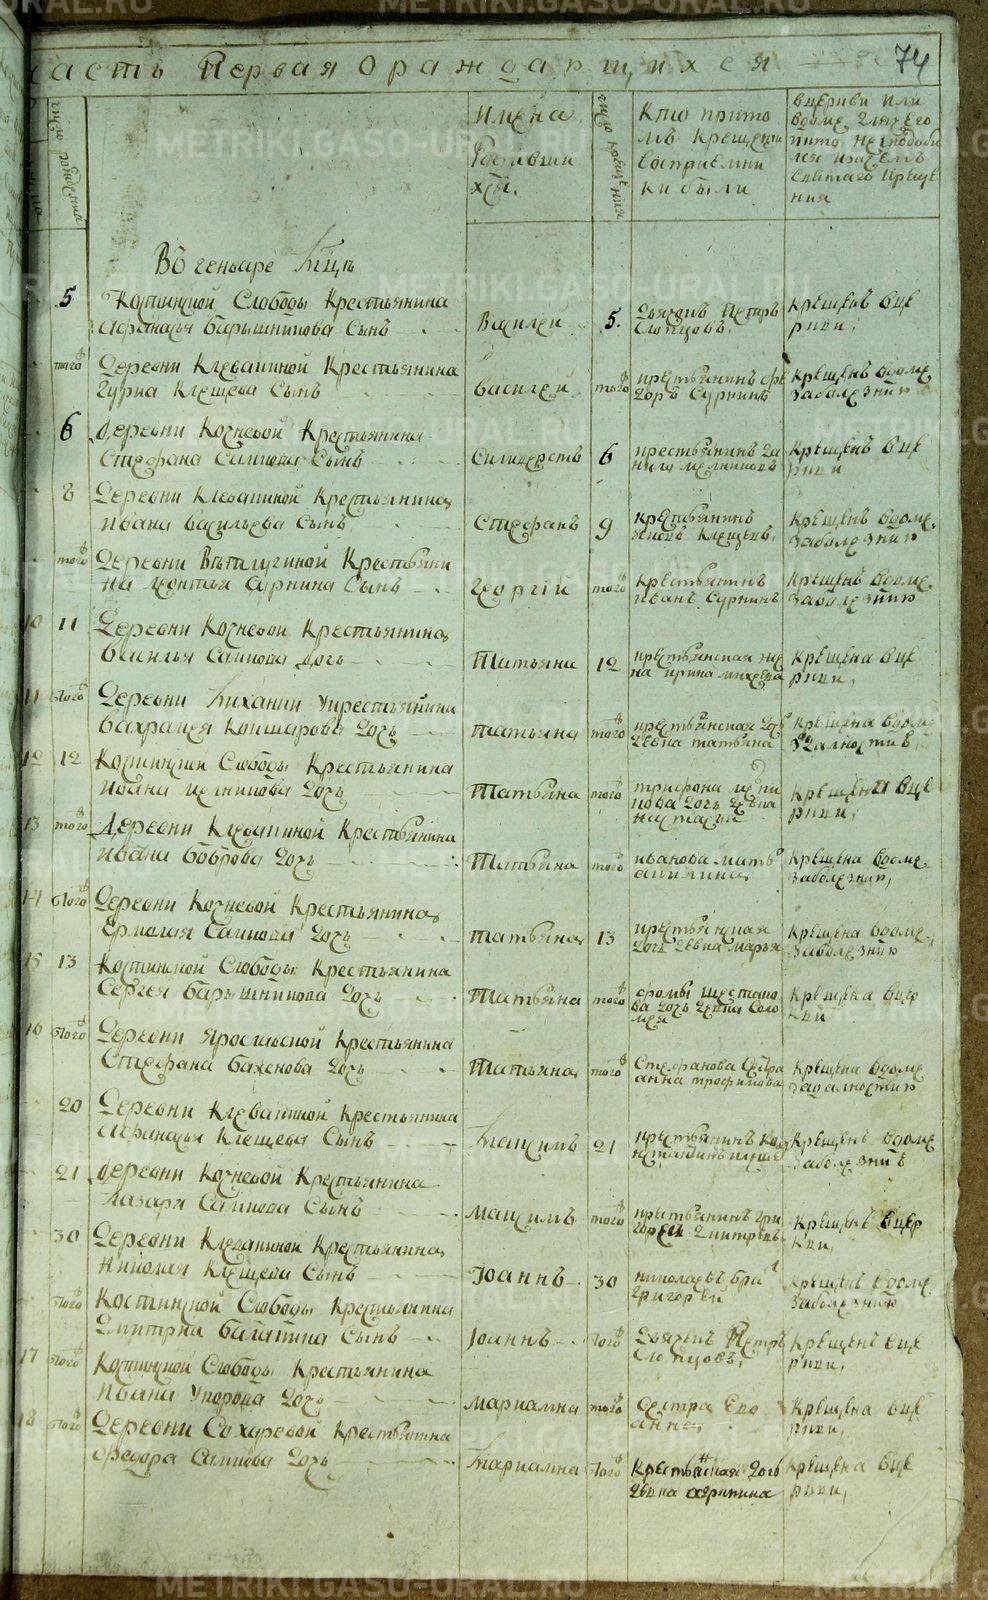 часть Первая ораждающихся
74
число рождения
Имена
Родивши
хся.
число крещения
Кто прито
мъ крещении
восприемни
ки были
вцеркви или
вдоме, длячего
кто не сподоби
лся
святаго креще
ния
Въ генваре мцѣ
5 Костинской Слободы Крестьянина
Афанасья Барышникова Сынъ
Василей 5. Дьячекъ Петръ
Слопцовъ.
Крещенъ вце
ркви,
того Деревни Клевакиной Крестьянина
Гуриа Клещева Сынъ
Василей того крестьянинъ Фе
доръ Суркинъ
Крещенъ вдоме
заболезнии
6 Деревни Кочневой Крестьянина
Стефана Саликова Сынъ
Силиверстъ 6 крестьянинъ Да
нило мелниковъ
Крещенъ вце
ркви
8 Деревни Клевакиной Крестьянина
Ивана Васильева Сынъ
Стефанъ 9 крестьянинъ
Клещевъ,
Крещенъ вдоме,
заболезнии
того Деревни Ветлугиной Крестьяни
на Леонтья Суркина Сынъ
Георгій того Крестьянинъ
Иванъ Суркинъ
Крещенъ вдоме
заболезнию
10 11 Деревни Кочневой Крестьянина
Василья Саликова Дочь
Татьяна 12 крестьянская же
на ирина михеева
Крещена вце
ркви,
11 того Деревни Крестьянина
Дочь
татьяна того крестьянская до
девка татьяна
Крещена вдоме
12 12 Костинской Слободы Крестьянина
Иоана Мелникова Дочь
Татьяна того трифона мелни
кова дочь девка
настасья
Крещены вце
ркви,
13 того Деревни Клевакиной Крестьянина
Ивана Боброва Дочь
Татьяна того иванова мать
акилина
Крещена вдоме,
заболезнии,
14 того Деревни Кочневой Крестьянина
Ермолая Саликова Дочь
татьяна 13 крестьянская
дочь девка марья
Крещена вдоме,
заболезнию
15 13 Костинской Слободы Крестьянина
Сергея Барышникова Дочь
Татьяна того фомы шестако
ва дочь девка Соло
мея
Крещена вцер
кви
16 того Деревни Ярославской Крестьянина
Стефана Баженова Дочь
Татьяна того Стефанова Сестра
анна трофимова
Крещена вдоме
задалностию
20 Деревни Клевакиной Крестьянина
Афанасья Клещева Сынъ
Максимъ 21 крестьянинъ Кон
стантинъ клеще
Крещенъ вдоме
заболезнию
21 Деревни Кочневой Крестьянина
Лазаря Саликова Сынъ
Максимъ того крестьянинъ Гри
горей Дмитревъ
Крещенъ вцер
кви,
30 Деревни Клевакиной Крестьянина
Николая Клещева Сынъ
Іоаннъ 30 николаевъ бра
григорей
Крещенъ вдоме
заболезнию
того Костинской Слободы Крестьянина
Димитриа Балакина Сынъ
Іоаннъ того Дьячекъ Петръ
Слопцовъ,
Крещенъ вце
ркви,
17 того Костинской Слободы Крестьянина
Ивана Упорова Дочь
мариамна того Сестра Ево
анна
Крещена вце
ркви,
18 того Деревни Сохаревой Крестьянина
Федора Саликова Дочь
Мариамна того Крестьянская дочь
девка агрипина
Крещена вце
ркви,
METRIKI.GASO-URAL.RU